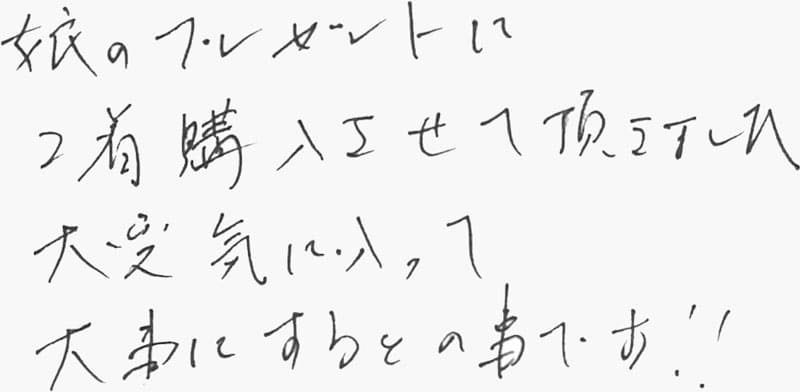 娘のプレゼントに
2着購入させて頂きました
大変気に入って
大事にするとの事です!!